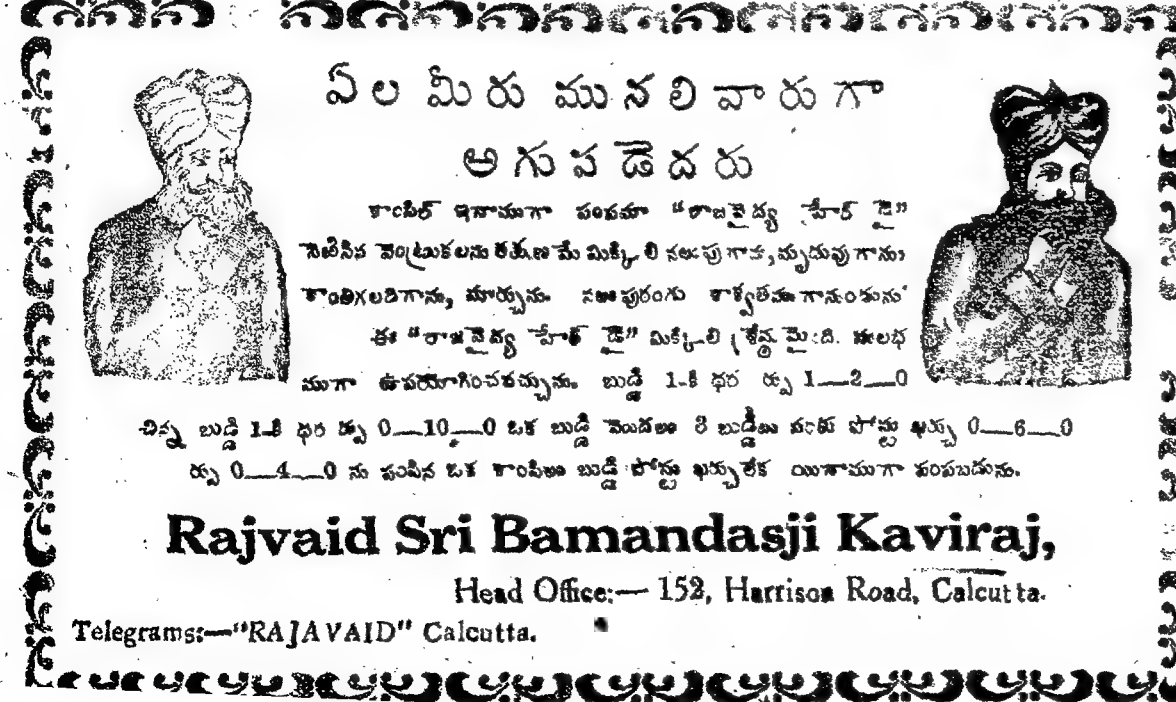 ఏల మీరు మునలివారుగా
అగుపడెదరు
శాంపిల్ ఇనాముగా పంపమా “రాజవైద్య హేర్ డై”
నెరిసిన వెంట్రుకలను తత్క్షణమే మిక్కిలి నలుపుగాను, మృదువుగాను,
కాంతిగలదిగాను, మార్చును. నలుపురంగు శాశ్వతము గానుండును
ఈ “రాజవైద్య హేర్ డై” మిక్కిలి శ్రేష్ఠమైది. సులభ
ముగా ఉపయోగించవచ్చును. బుడ్డి 1-కి ధర ర్పు 1—2—0
చిన్న బుడ్డి 1-కి ధర ర్పు 0—10—0 ఒక బుడ్డి మొదలు 3 బుడ్లకు వరకు పోస్టు ఖర్చు 0—6—0
ర్పు 0—4—0 ను పంపిన ఒక శాంపిలు బుడ్డి పోస్టు ఖర్చులేక యినాముగా పంపబడును.
Rajvaid Sri Bamandasji Kaviraj,
Head Office:— 152, Harrison Road, Calcutta.
Telegrams:—“RAJAVAID” Calcutta.